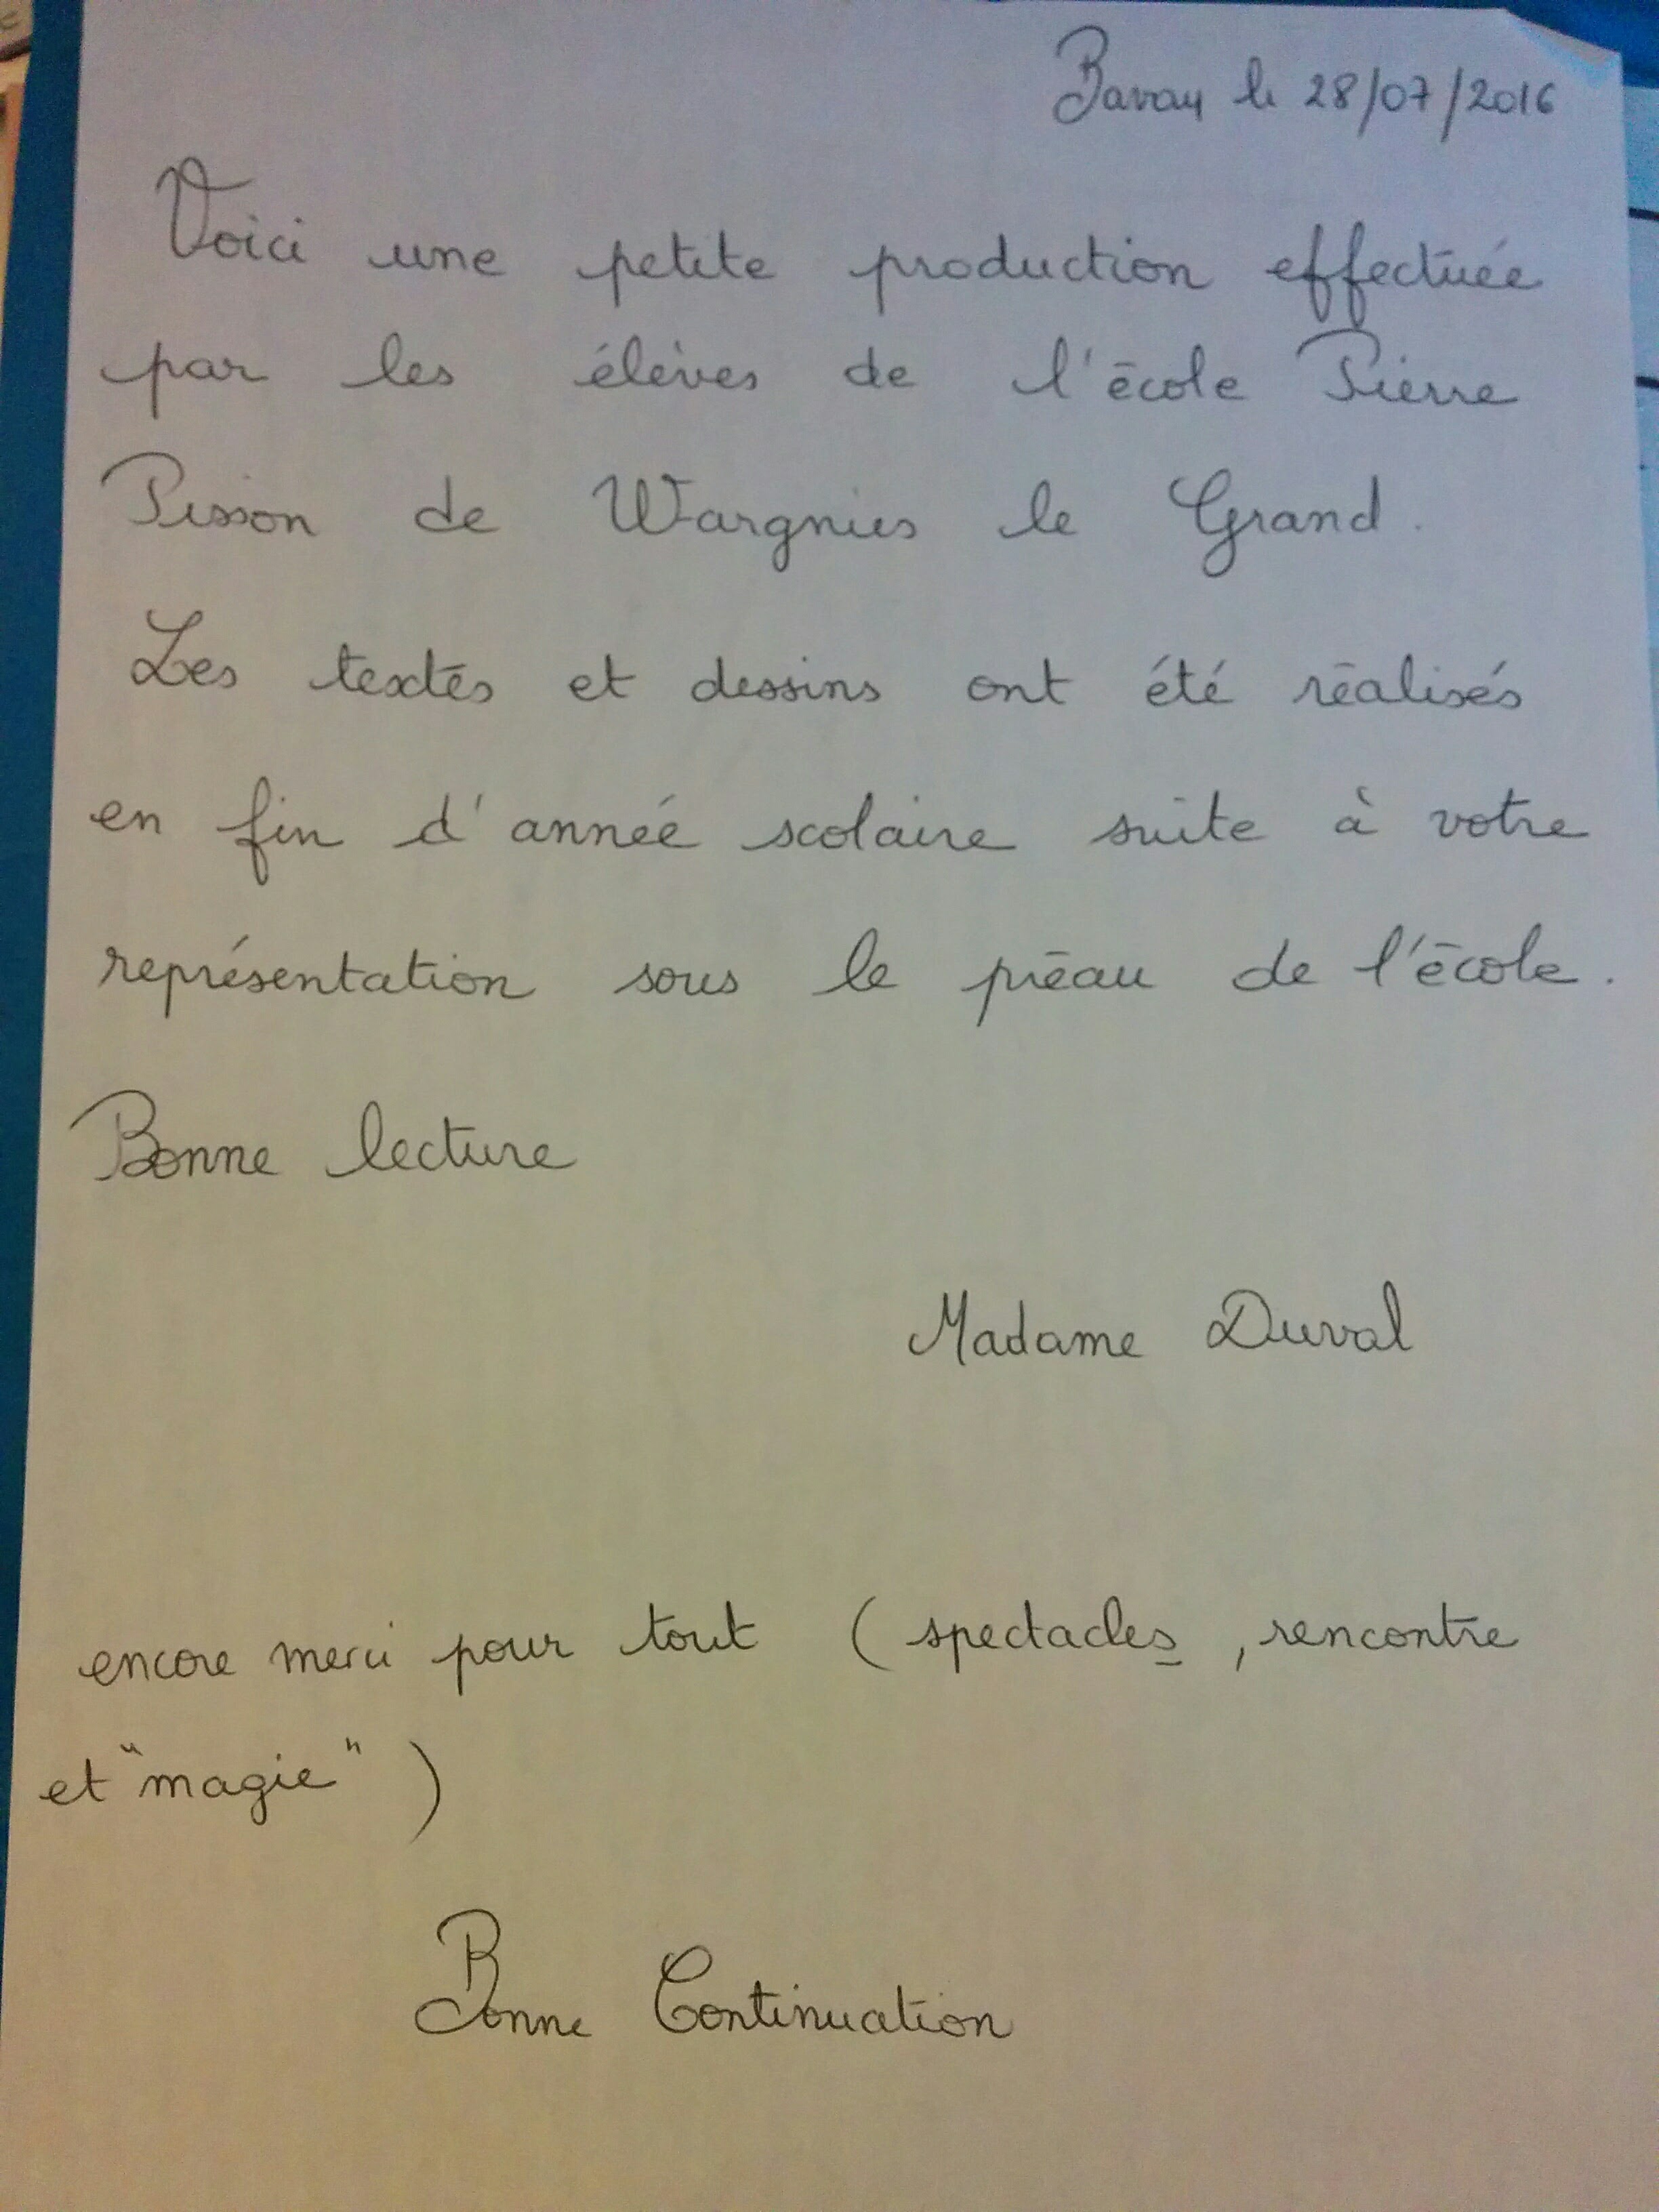 Bavay le 28/07/2016
Voici une petite production effectuée
par les élèves de l'école Pierre
Pisson de Wargnies le Grand.
Les textes et dessins ont été réalisés
en fin d'année scolaire suite à votre
représentation sous le préau de l'école.
Bonne lecture
Madame Duval
encore merci pour tout (spectacles, rencontre
et "magie")
Bonne Continuation